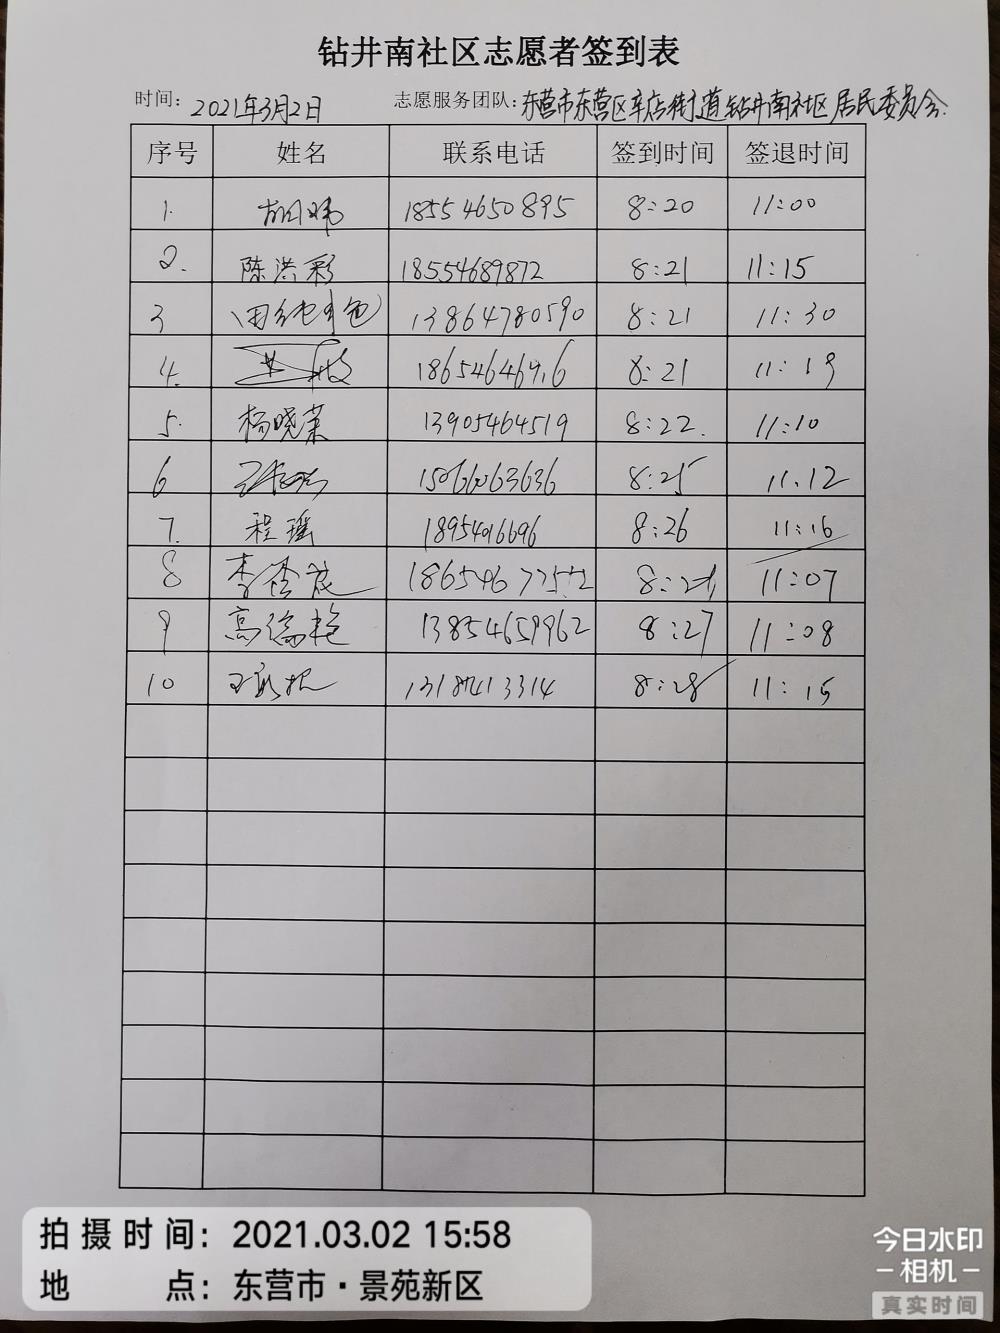 钻井南社区志愿者签到表
时间: 2021年3月2日 志愿服务团队: 东营市东营区辛店街道钻井南社区居民委员会
序号 姓名 联系电话 签到时间 签退时间
1. 18554650895 8:20 11:00
2. 陈洪彩 18554689872 8:21 11:15
3 13864780590 8:21 11:30
4. 8:21 11:19
5. 杨晓荣 13905464519 8:22. 11:10
6 8:25 11.12
7. 程瑶 8:26 11:16
8 11:07
9 13854659962 8:27 11:08
10 8:28 11:15
拍摄时间: 2021.03.02 15:58
地点: 东营市·景苑新区
今日水印
-相机-
真实时间